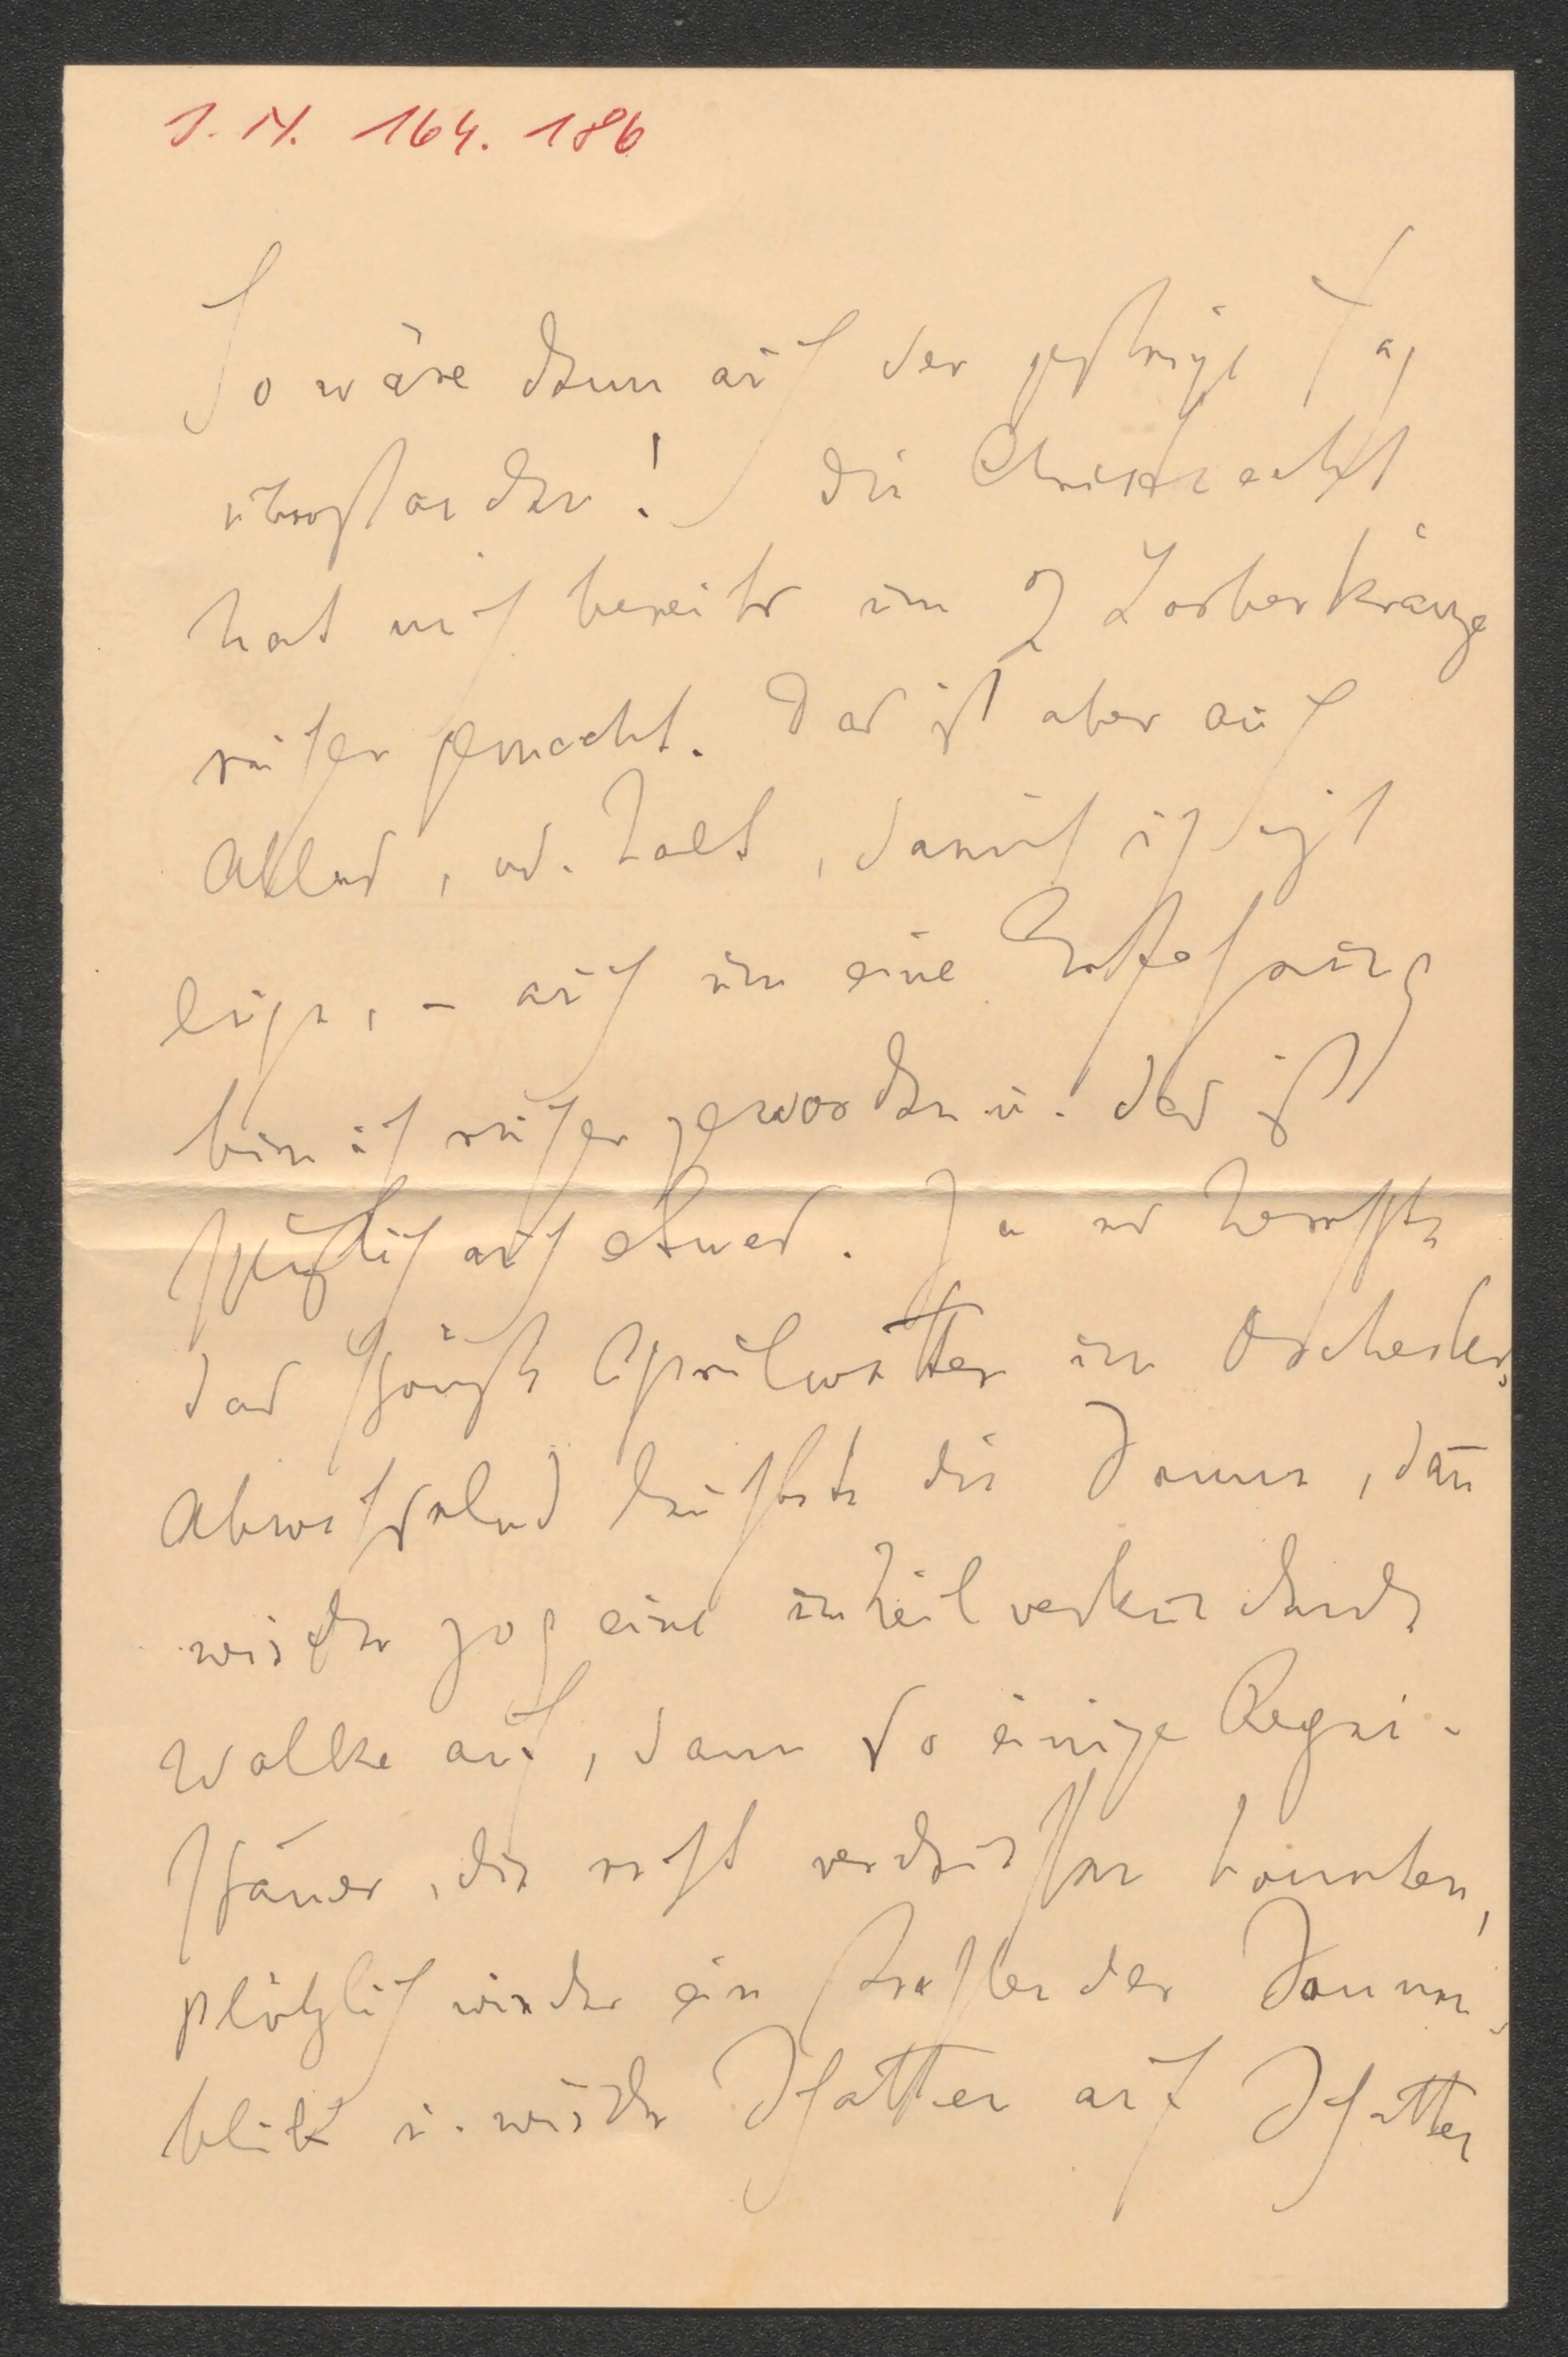 J. N. 164.186
So wäre denn auch der gestrige Tag
überstanden! Die Christnacht
hat mich bereits um 2 Lorberkränze
reicher gemacht. Das ist aber auch
Alles, od. halt, damit ich nicht
lüge, – auch um eine Erfahrung
bin ich reicher geworden u. das ist
schließlich auch etwas. Ja es herrschte
das schönste Aprilwetter im Orchester,
Abwechselnd leuchtete die Sonne, dan̄
wieder zog eine unheilverkündende
Wolke auf, dann so einige Regen-
schauer, die nicht verdrießen konnten,
plötzlich wieder ein strahlender Sonnen-
blick u. wieder Schatten auf Schatten